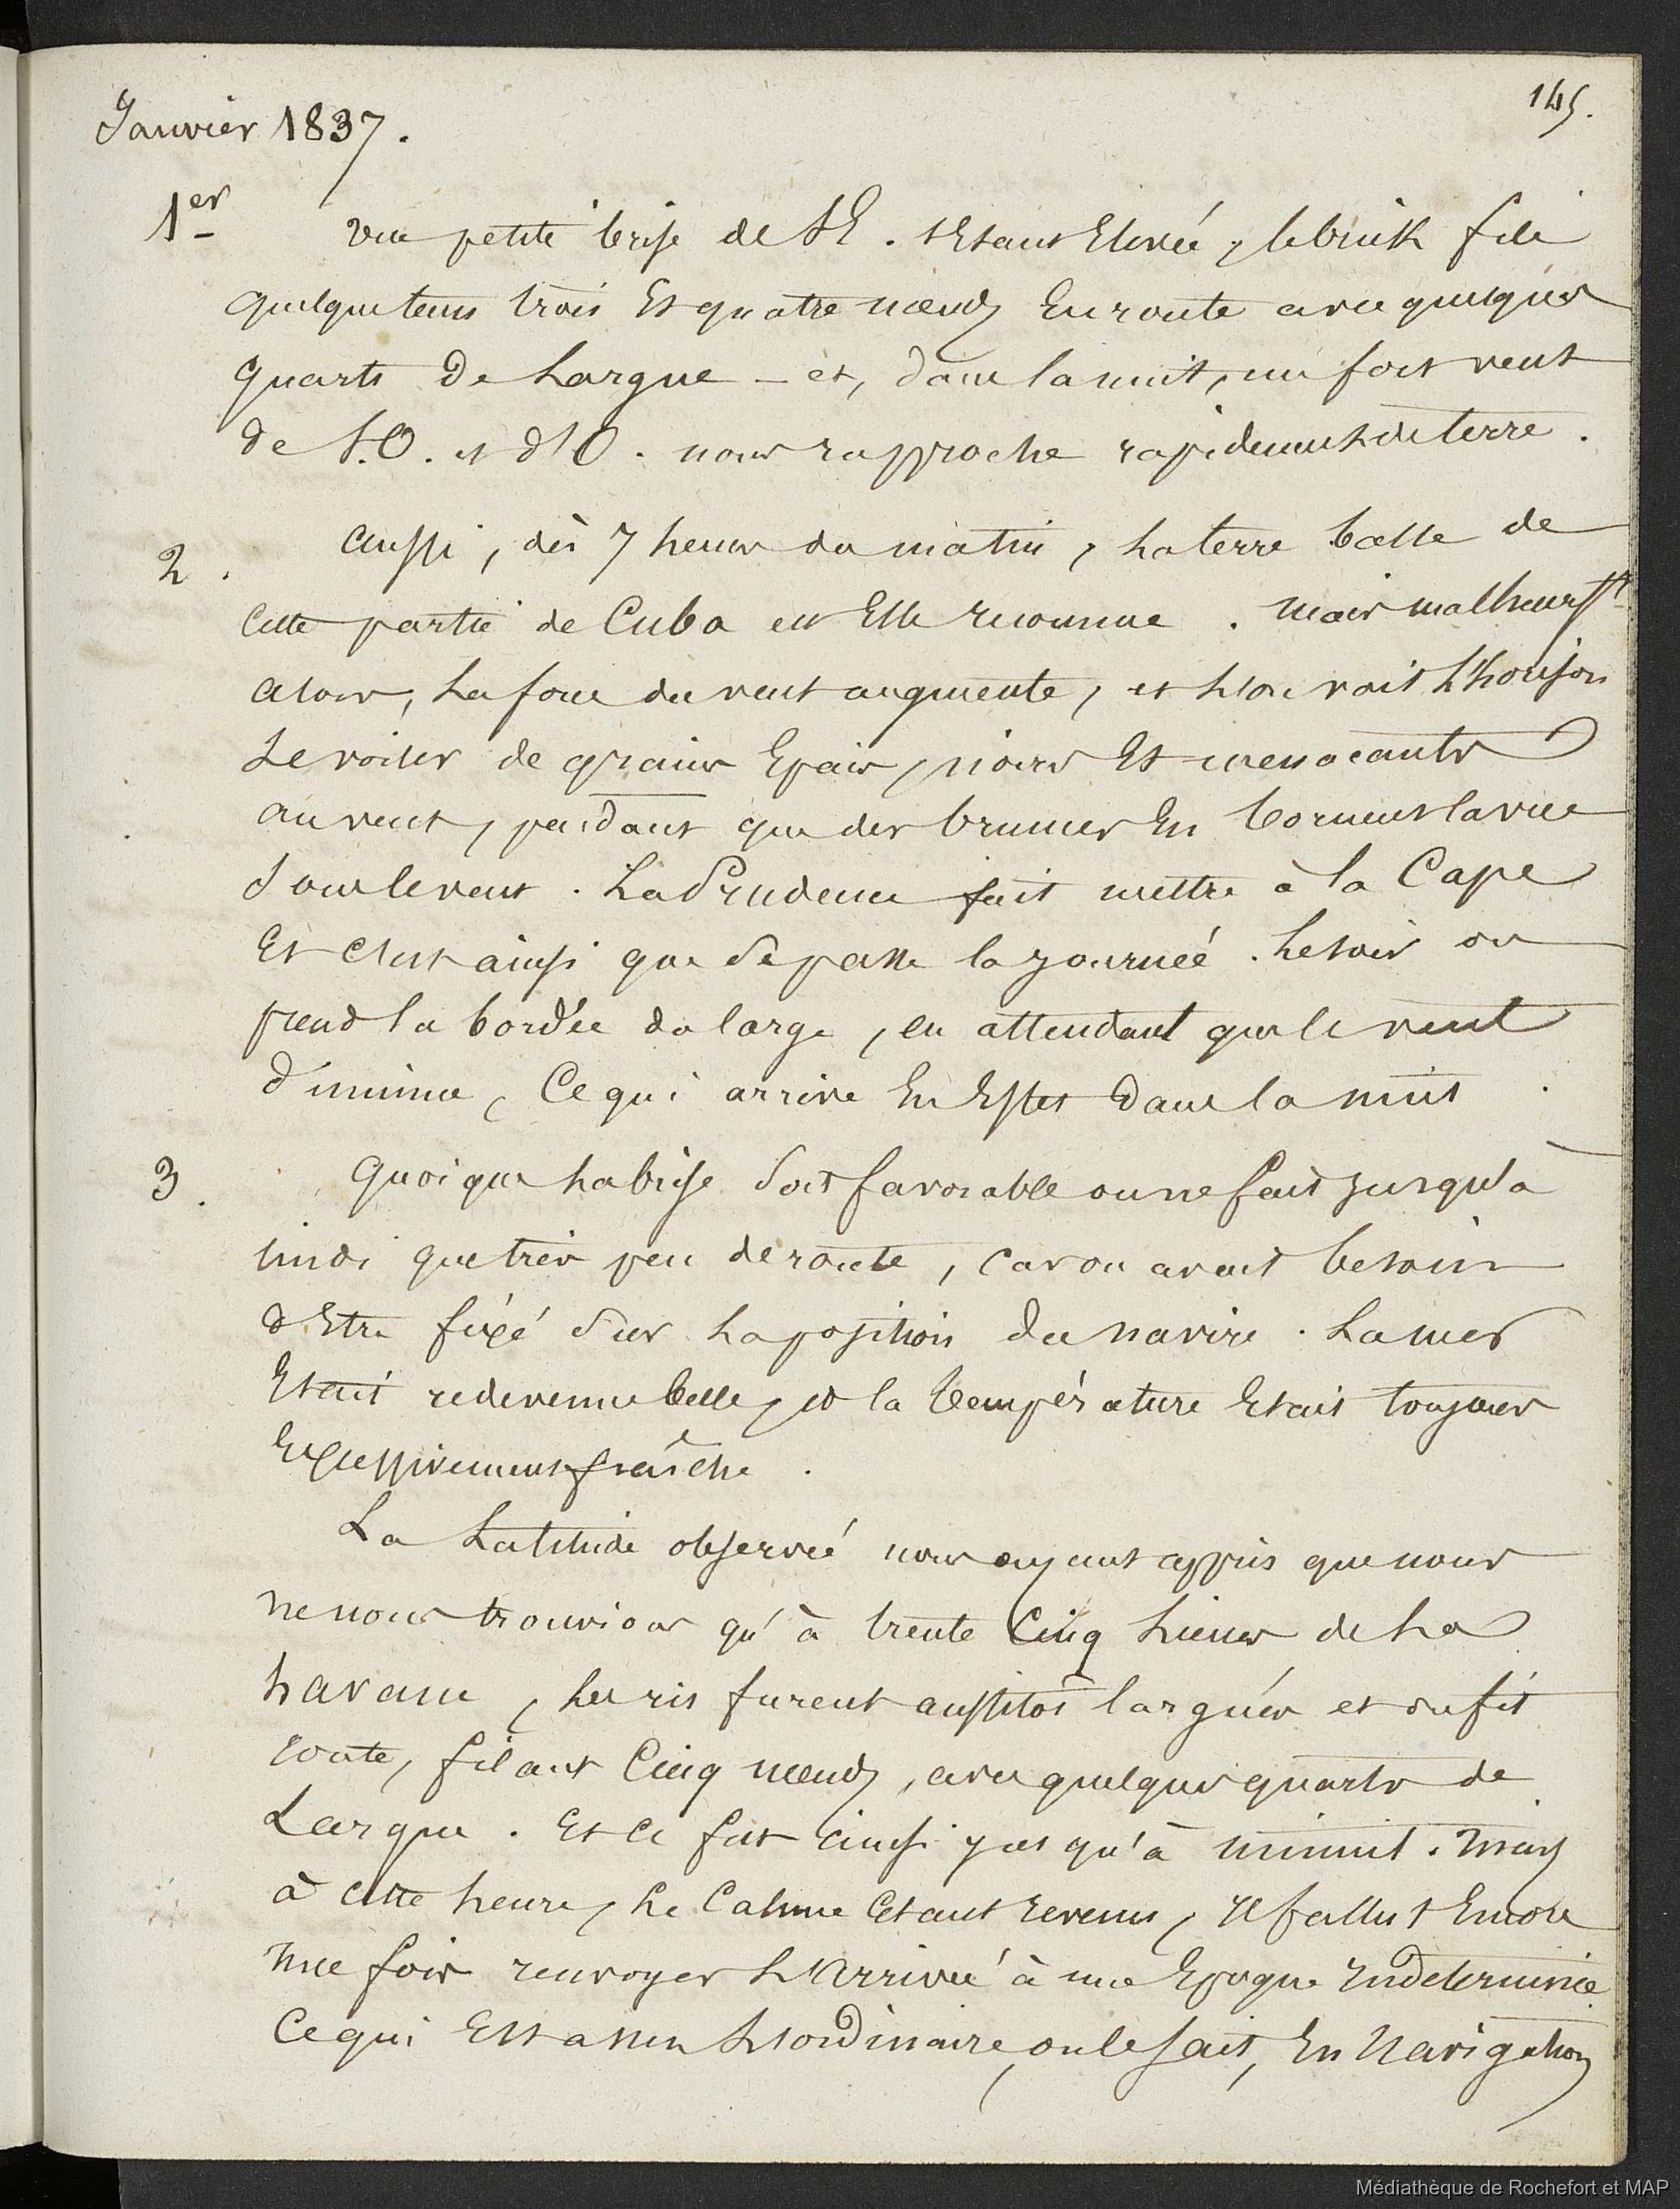 145.
Janvier 1837.
1er Une petite brise de S E. s'Etant Elevée, le brick file
quelque tems trois Et quatre nœuds En route avec quelques
quarts De Largue – et, dans la nuit, un fort vent
de S.O. et d'O. nous rapproche rapidement de terre.
2. Aussi, dès 7 heures du matin, La terre basse de
Cette partie de Cuba est Elle reconnue. Mais malheurst
alors, La force du vent augmente, et L'on voit L'horison
Se voiler de grains Epais, noirs Et menacants
au vent, pendant que des brumes En bornent la vue
Sous le vent. La Prudence fait mettre à la Cape
Et C'est ainsi que Se passe la journée. Le soir on
prend la bordée du large, en attendant que le vent
diminue, Ce qui arrive En Effet Dans la nuit.
3. Quoique La brise Soit favorable on ne fait jusqu'à
midi que très peu de route, car on avait besoin
d'Etre fixé Sur La position du navire. La mer
Etait redevenue belle, et la température Etait toujours
Excessivement fraîche.
La Latitude observée nous ayant appris que nous
ne nous trouvions qu'à trente Cinq Lieues de La
havane, Les ris furent aussitôt largués et on fit
route, filant Cinq nœuds, avec quelques quarts de
Largue. Et Ce fut ainsi jusqu'à minuit. Mais
à cette heure, Le Calme Etant revenu, Il fallut Encore
une fois renvoyer L'Arrivée à une Epoque Indeterminée
Ce qui Est assez L'ordinaire, on le sait, En Navigation
Médiathèque de Rochefort et MAP